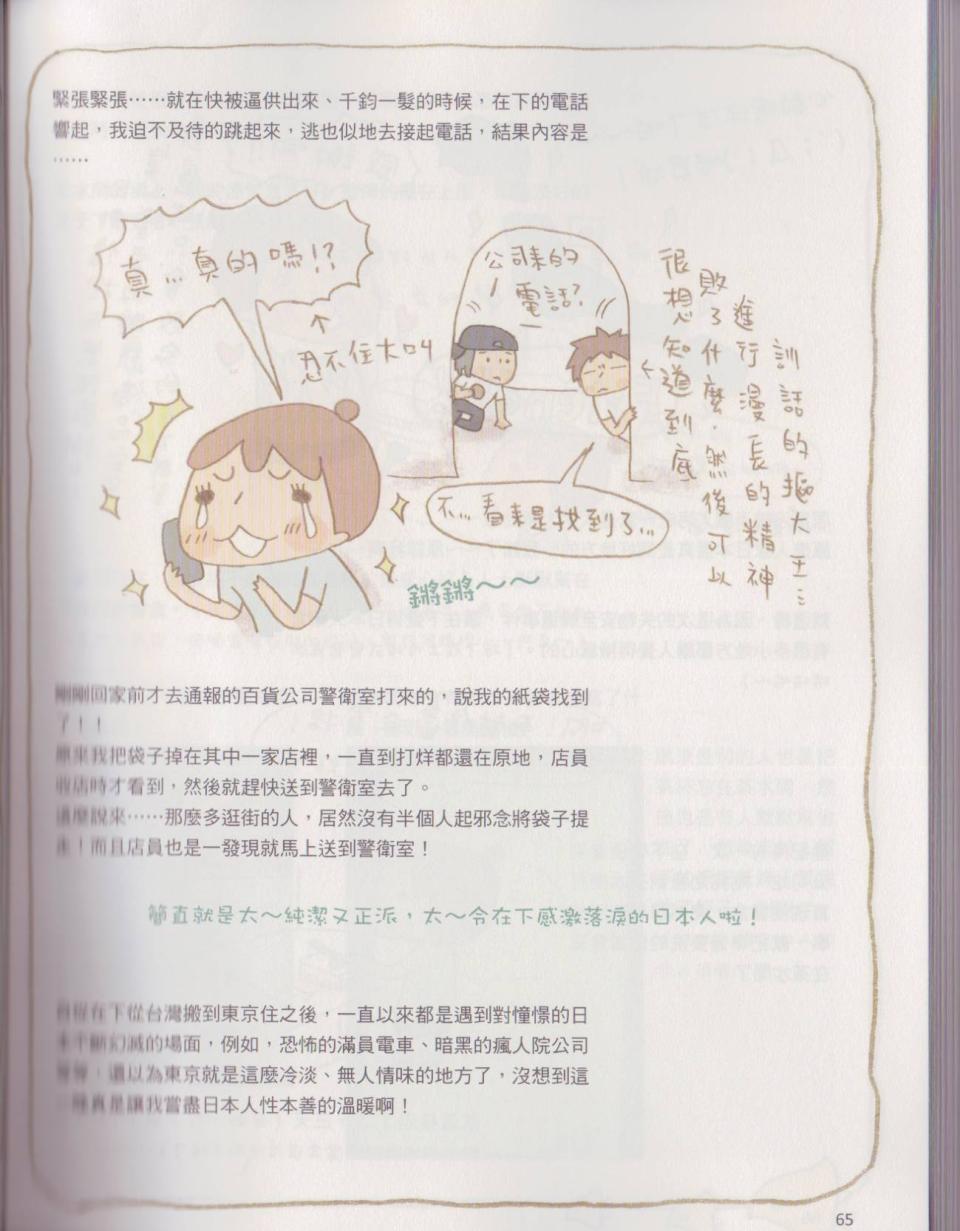 緊張緊張……就在快被逼供出來、千鈞一髮的時候，在下的電話
響起，我迫不及待的跳起來，逃也似地去接起電話，結果內容是
……
真…真的嗎!?
忍不住大叫
公司來的
電話?
訓話的摳大王…
進行漫長的精神
敗了什麼，然後可以
很想知道到底
不…看來是找到了…
鏘鏘～～
剛剛回家前才去通報的百貨公司警衛室打來的，說我的紙袋找到
了！！
原來我把袋子掉在其中一家店裡，一直到打烊都還在原地，店員
收店時才看到，然後就趕快送到警衛室去了。
這麼說來……那麼多逛街的人，居然沒有半個人起邪念將袋子提
走！而且店員也是一發現就馬上送到警衛室！
簡直就是太～純潔又正派，太～令在下感激落淚的日本人啦！
在下從台灣搬到東京住之後，一直以來都是遇到對憧憬的日
不斷幻滅的場面，例如，恐怖的滿員電車、暗黑的瘋人院公司
，還以為東京就是這麼冷淡、無人情味的地方了，沒想到這
真是讓我嘗盡日本人性本善的溫暖啊！
65